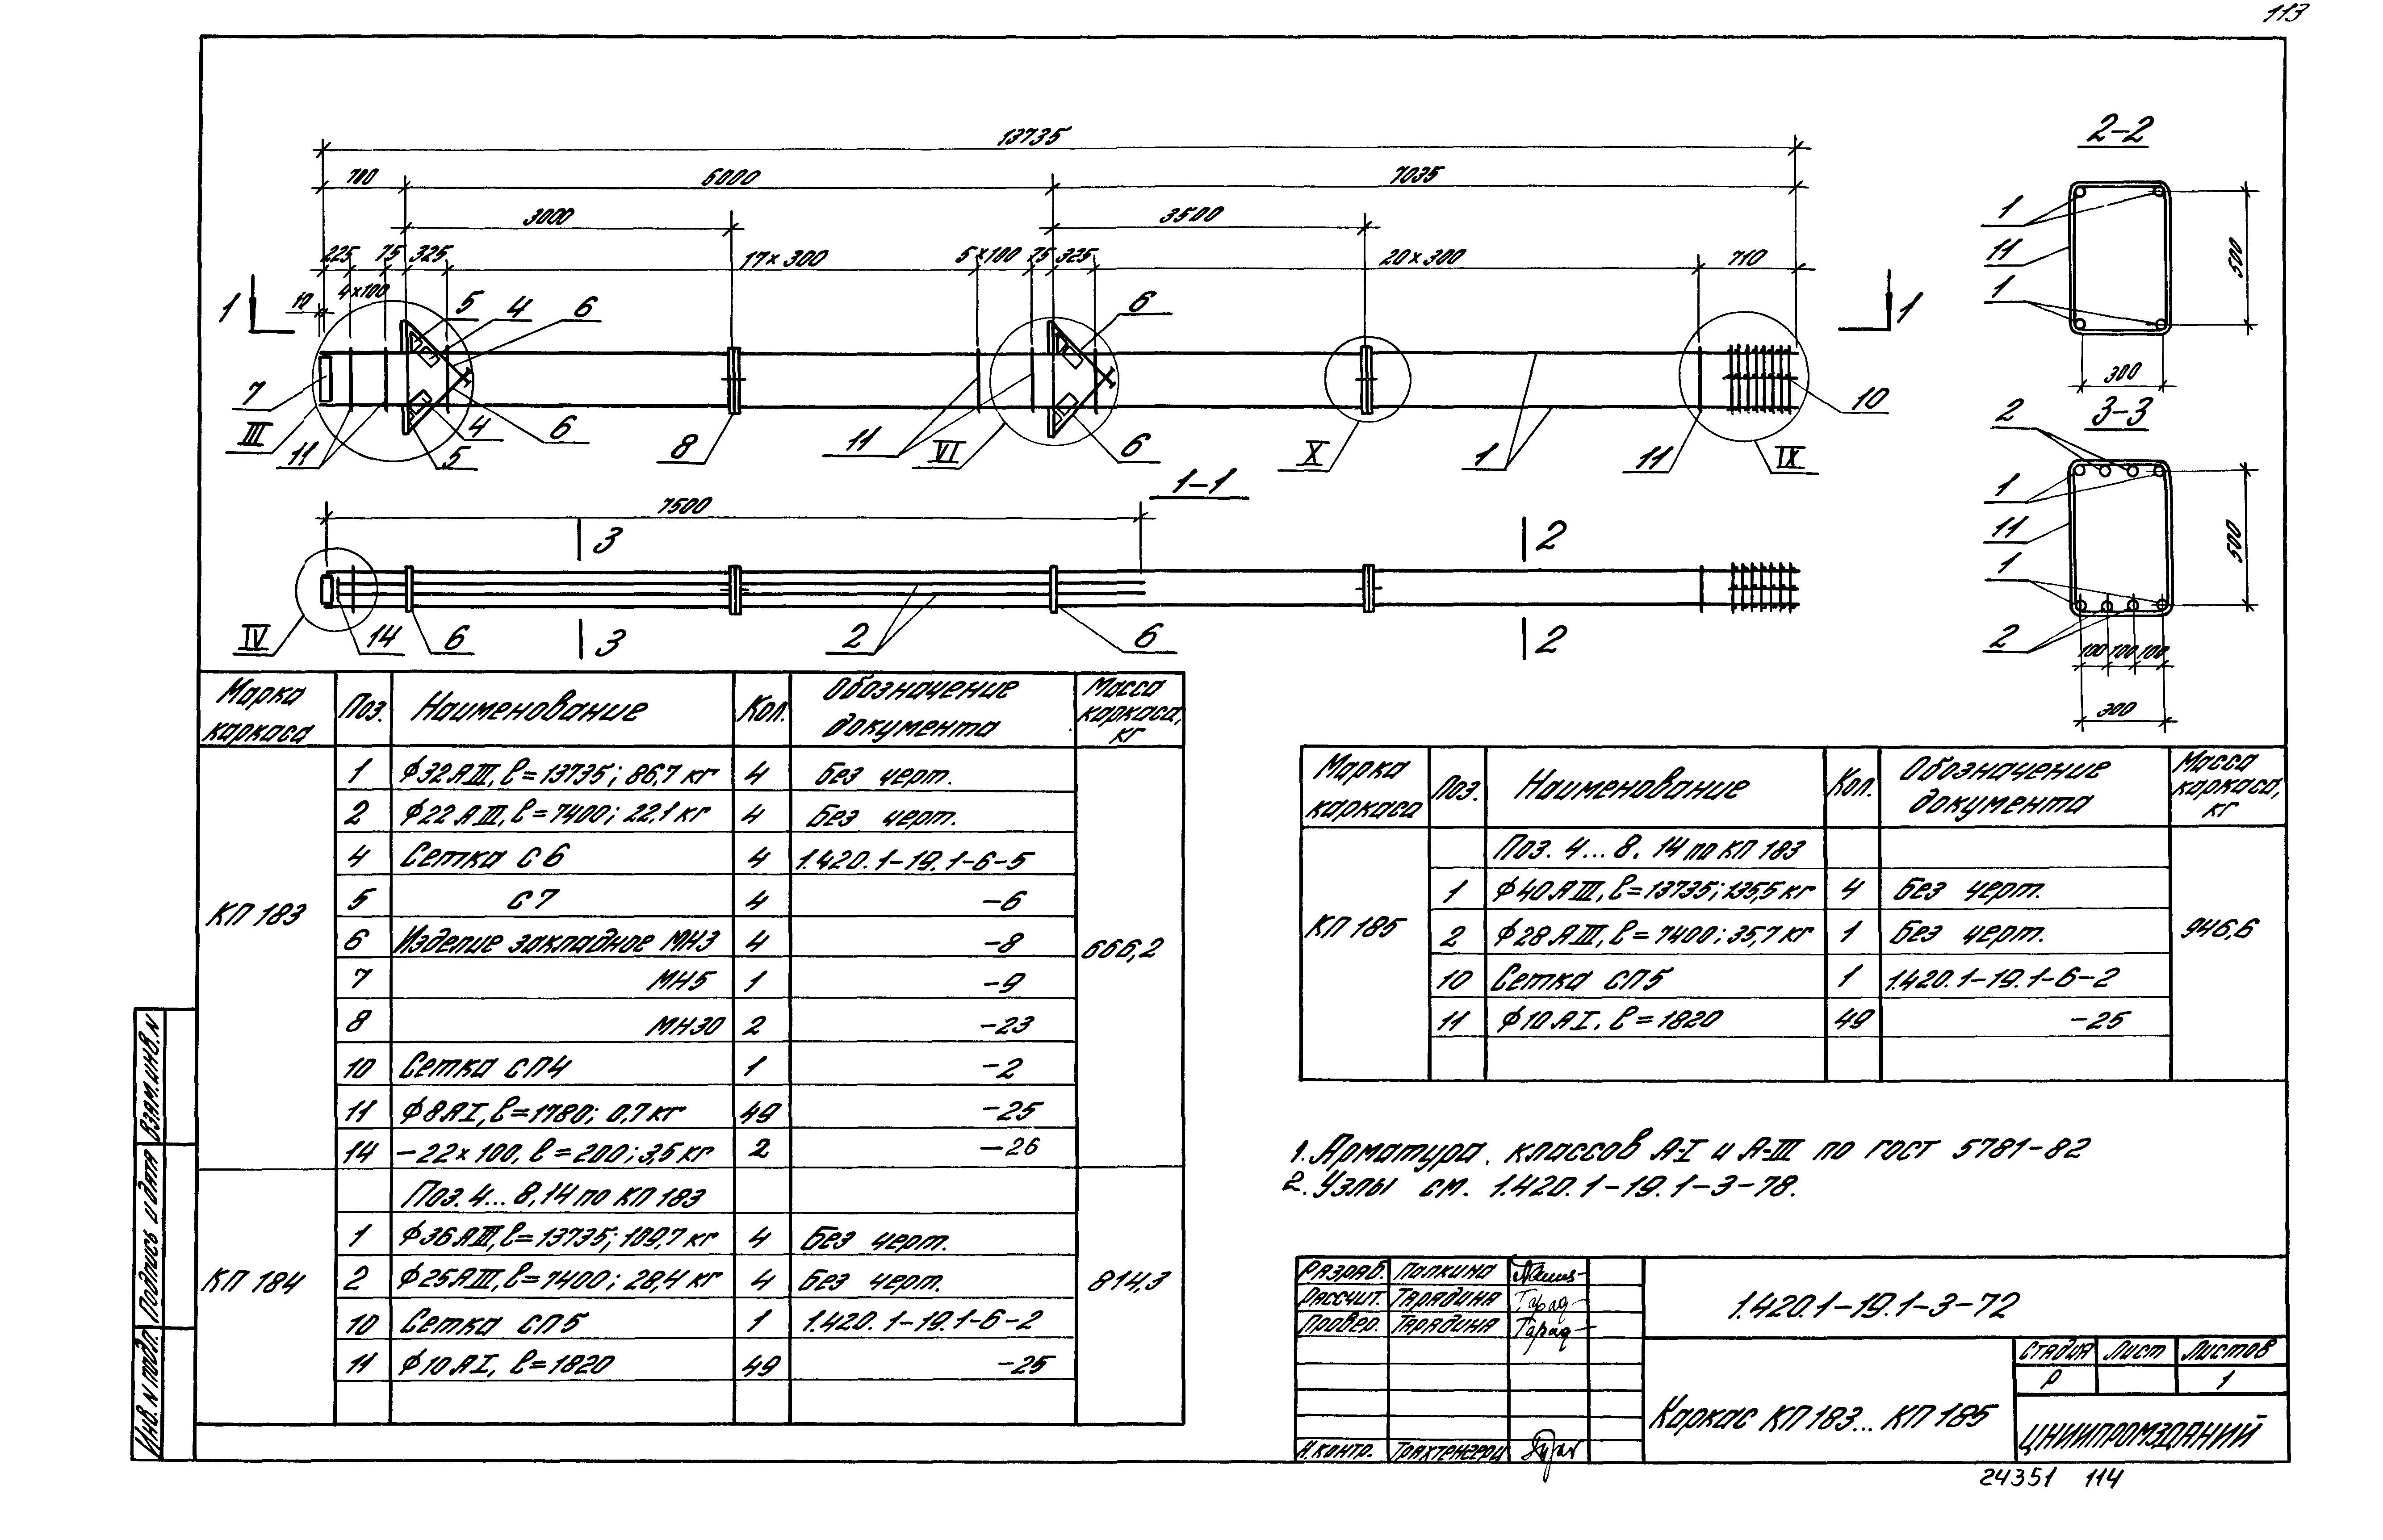 113
13735
700 6000 7035
3000 3500
225 75 325 17×300 5×100 75 325 20×300 710
10 4×100
1 5 4 6 6 1
7 III 11 5 4 6 8 11 VI 6 X 1 11 IX 10
1-1
7500
3 2
IV 14 6 3 2 6 2
2-2
1
11
1
500
300
3-3
2
1
11
1
2
500
100 100 100
300
Марка каркаса Поз. Наименование Кол. Обозначение документа Масса каркаса, кг
КП 183 666,2
1 ф32АIII, ℓ=13735; 86,7 кг 4 Без черт.
2 ф22АIII, ℓ=7400; 22,1 кг 4 Без черт.
4 Сетка С6 4 1.420.1-19.1-6-5
5 С7 4 -6
6 Изделие закладное МН3 4 -8
7 МН5 1 -9
8 МН30 2 -23
10 Сетка СП4 1 -2
11 ф8АI, ℓ=1780; 0,7 кг 49 -25
14 -22×100, ℓ=200; 3,5 кг 2 -26
КП 184 814,3
Поз. 4...8, 14 по КП 183
1 ф36АIII, ℓ=13735; 109,7 кг 4 Без черт.
2 ф25АIII, ℓ=7400; 28,4 кг 4 Без черт.
10 Сетка СП5 1 1.420.1-19.1-6-2
11 ф10АI, ℓ=1820 49 -25
Марка каркаса Поз. Наименование Кол. Обозначение документа Масса каркаса, кг
КП 185 946,6
Поз. 4...8. 14 по КП 183
1 ф40АIII, ℓ=13735; 135,5 кг 4 Без черт.
2 ф28АIII, ℓ=7400; 35,7 кг 1 Без черт.
10 Сетка СП5 1 1.420.1-19.1-6-2
11 ф10АI, ℓ=1820 49 -25
1. Арматура классов А-I и А-III по ГОСТ 5781-82
2. Узлы см. 1.420.1-19.1-3-78.
Разраб. Палкина
Рассчит. Тарадина Тарад
Провер. Тарадина Тарад
Н.контр.
1.420.1-19.1-3-72
Каркас КП 183... КП 185
Стадия Лист Листов
Р 1
ЦНИИПРОМЗДАНИЙ
24351 114
Взам.инв.N
Подпись и дата
Инв.N подл.